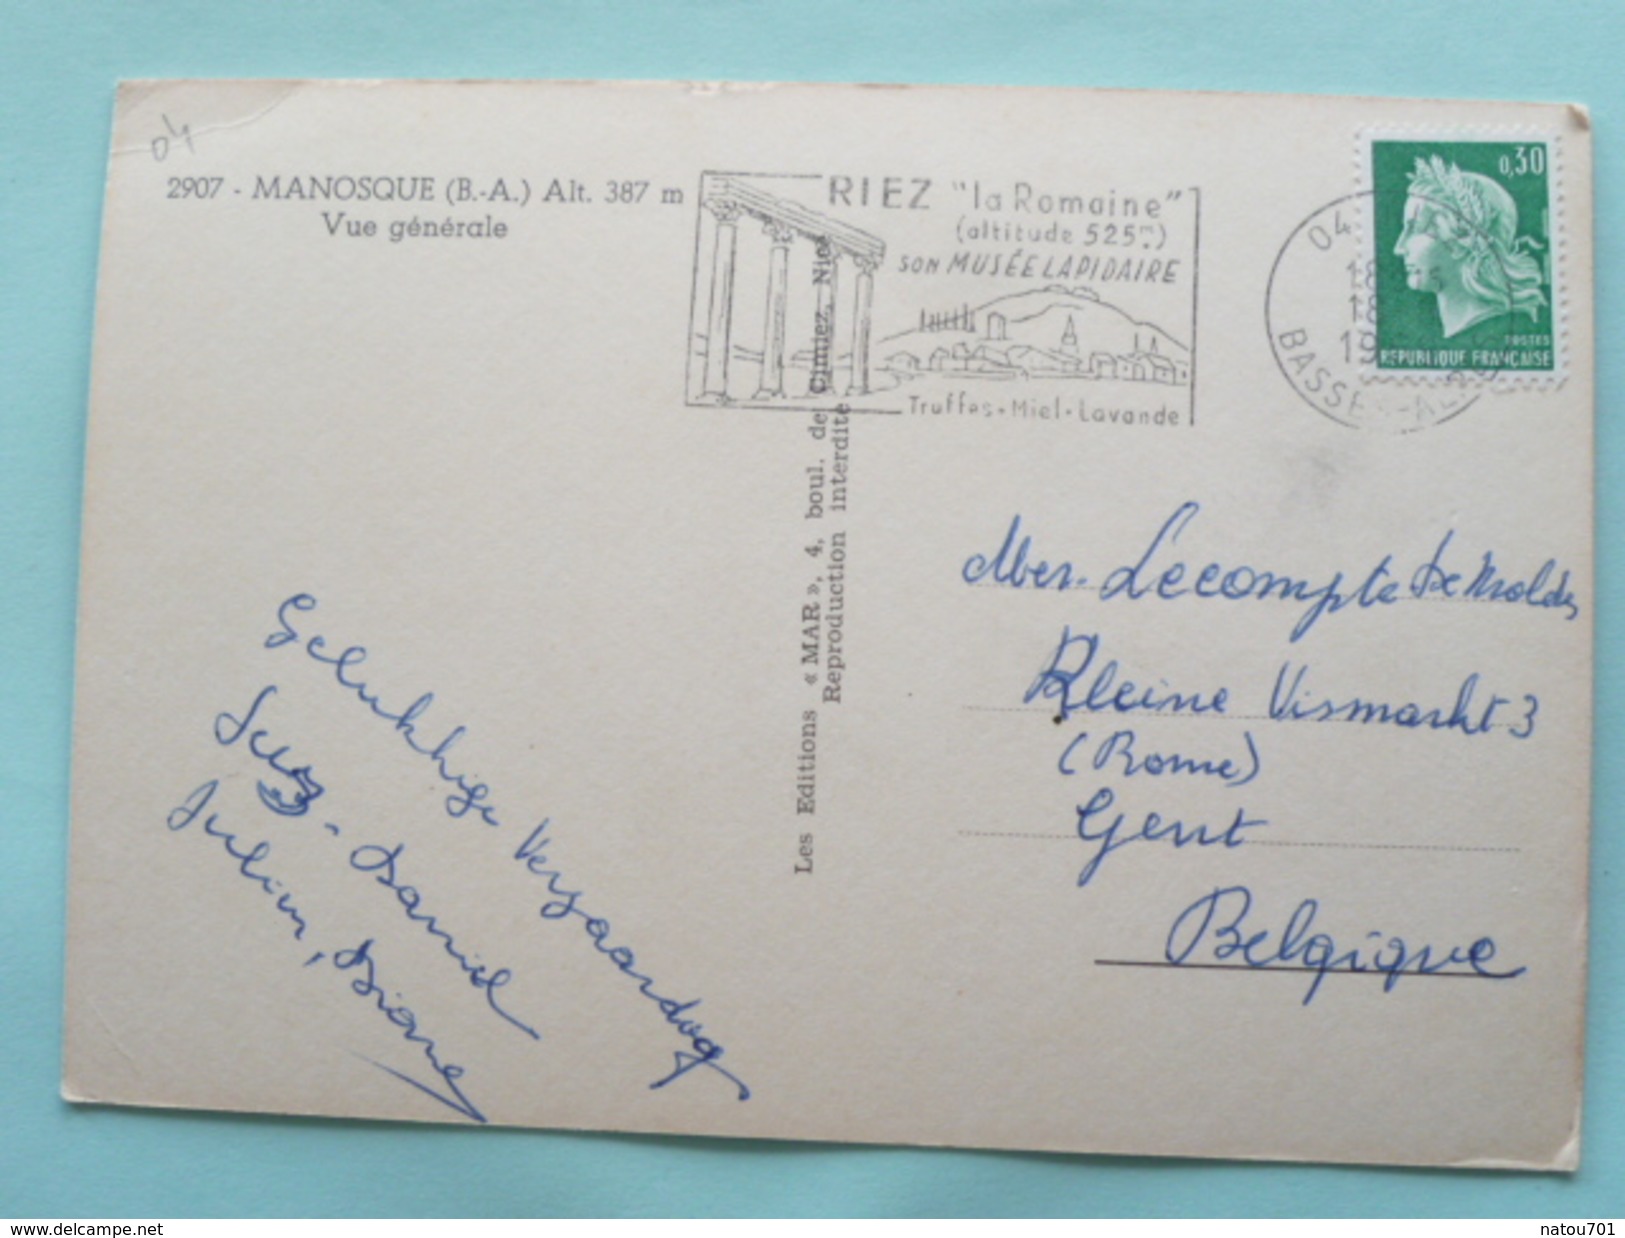 04
2907 - MANOSQUE (B.-A.) Alt. 387 m
Vue générale
RIEZ "la Romaine"
(altitude 525m)
SON MUSÉE LAPIDAIRE
Truffes - Miel - Lavande
04
18
18
19
BASSES-ALPES
0,30
POSTES
REPUBLIQUE FRANÇAISE
Les Editions « MAR », 4, boul. de Cimiez, Nice
Reproduction interdite
Gelukkige Verjaardag
Suzy - Daniel
Julien, Diane
Mer. Lecompte De
Kleine Vismarkt 3
(Rome)
Gent
Belgique
www.delcampe.net
natou701